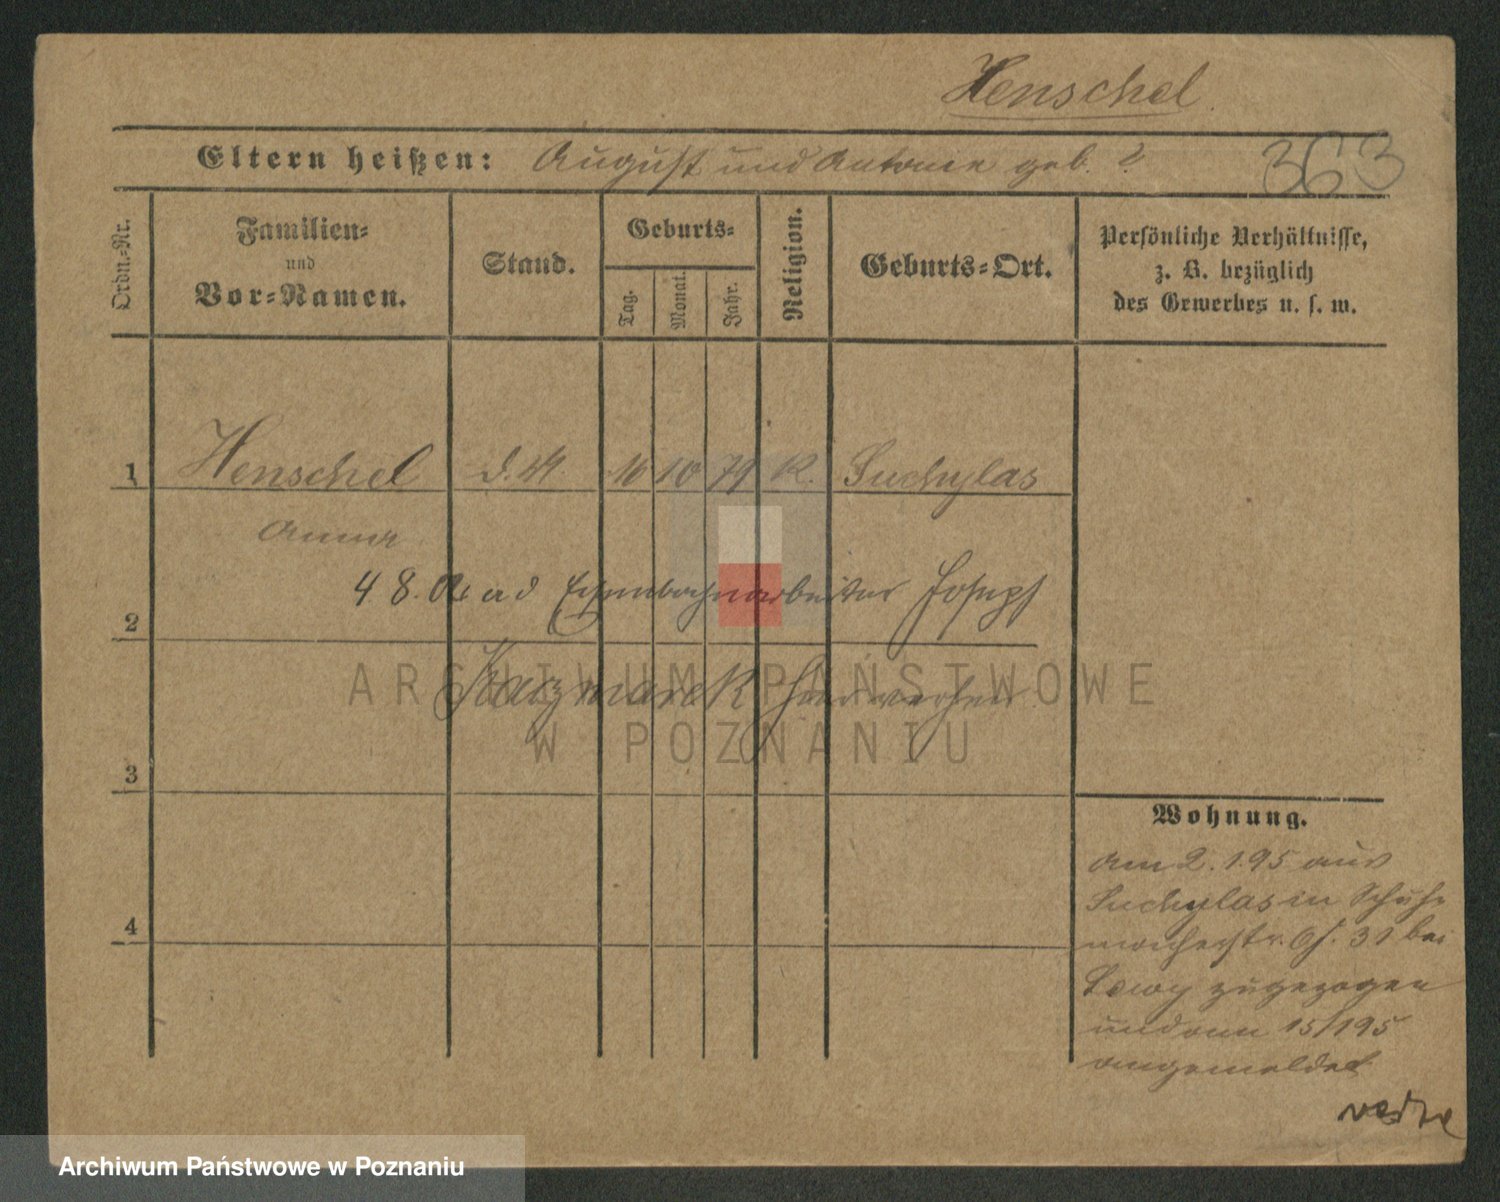 Henschel
Eltern heißen: August und Antonie geb. ?
363
Ordn.-Nr.
Familien-
und
Vor-Namen.
Stand.
Geburts-
Tag.
Monat.
Jahr.
Religion.
Geburts-Ort.
Persönliche Verhältnisse,
z. B. bezüglich
des Gewerbes u. s. w.
1 Henschel d. M 16 10 79 K. Suchylas
Anna
4 8. Eisenbahnarbeiter Josef
2
Kaczmarek
3
4
Wohnung.
am 2. 1. 95 aus
Suchylas in Schuh-
macherstr. 31 bei
Lewy zugezogen
und am 15/1 95
angemeldet
ARCHIWUM PAŃSTWOWE
W POZNANIU
Archiwum Państwowe w Poznaniu